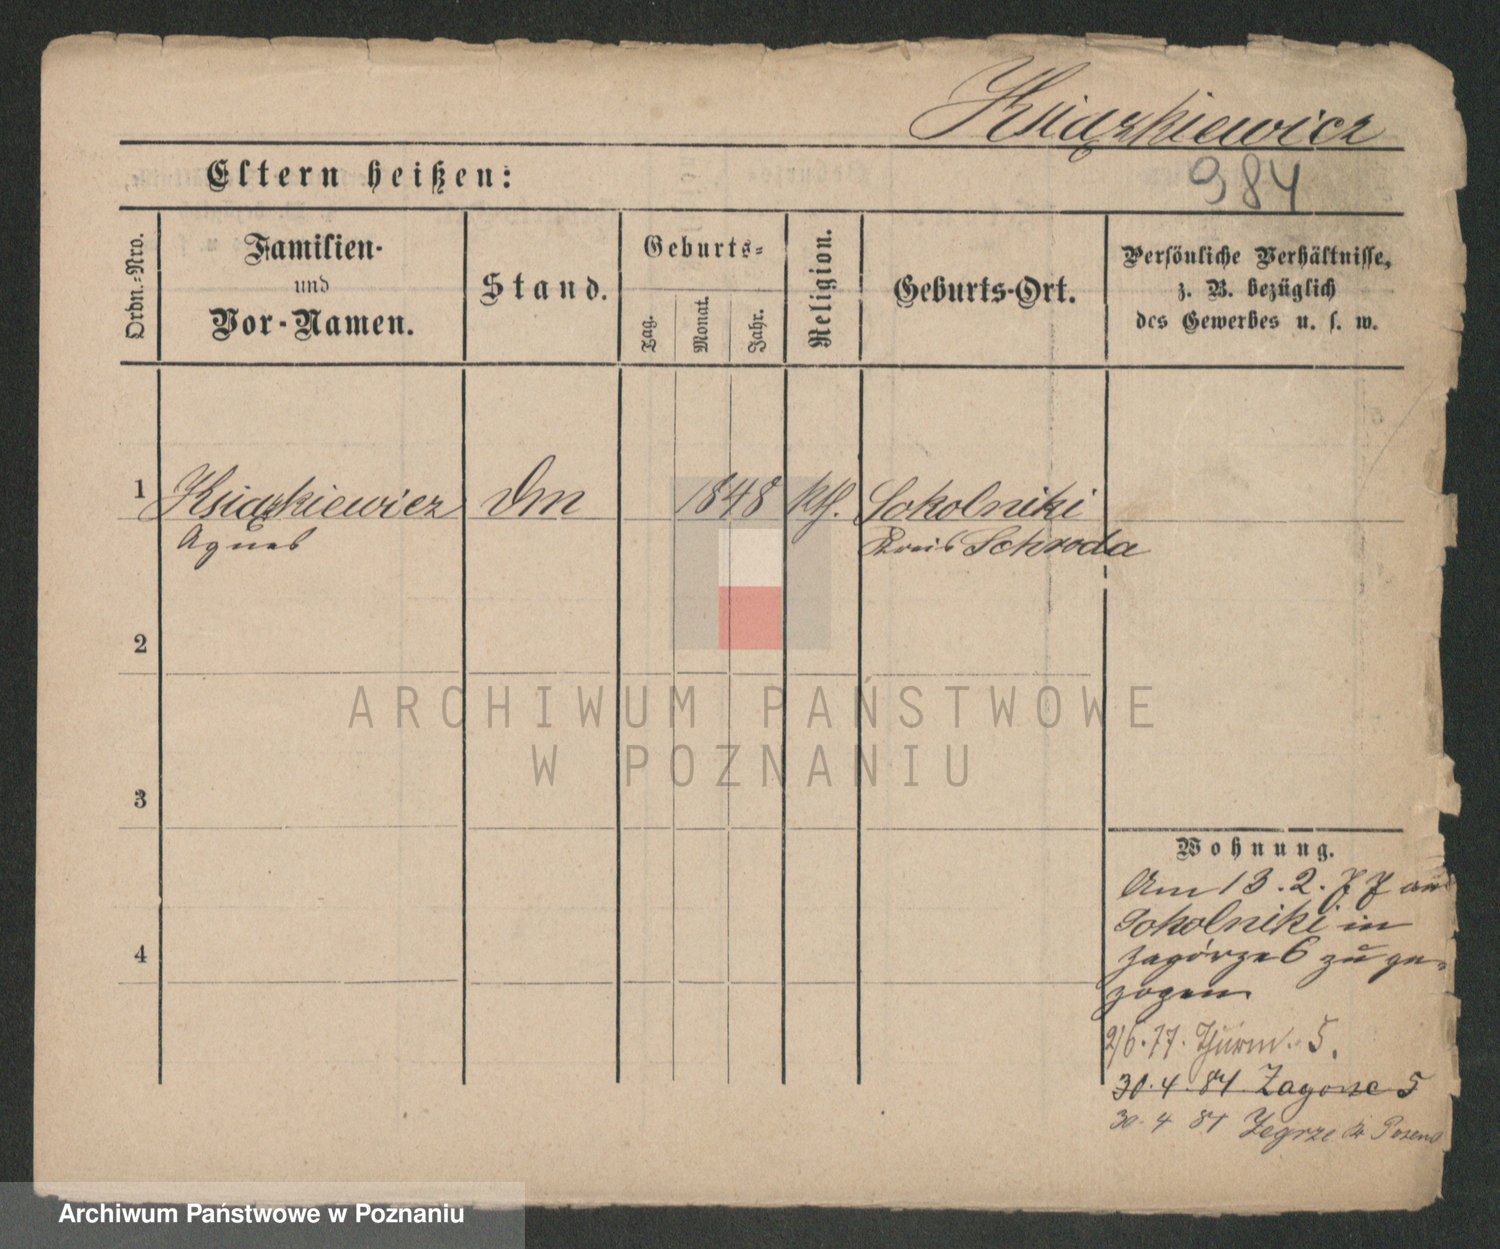 Książkiewicz
984
Eltern heißen:
Ordn.-Nro.
Familien-
und
Vor-Namen.
Stand.
Geburts-
Tag.
Monat.
Jahr.
Religion.
Geburts-Ort.
Persönliche Verhältnisse,
z. B. bezüglich
des Gewerbes u. s. w.
1 Książkiewicz 1848 Kth. Sokolniki
Agnes Kreis Schroda
2
3
4
ARCHIWUM PAŃSTWOWE
W POZNANIU
Wohnung.
Am 13.2.77 aus
Sokolniki in
Zagórze 6 zu ge-
zogen
2/6.77. Thurm. 5.
30.4.81 Zagorze 5
30.4 81 Zegrze Kr Posen
Archiwum Państwowe w Poznaniu